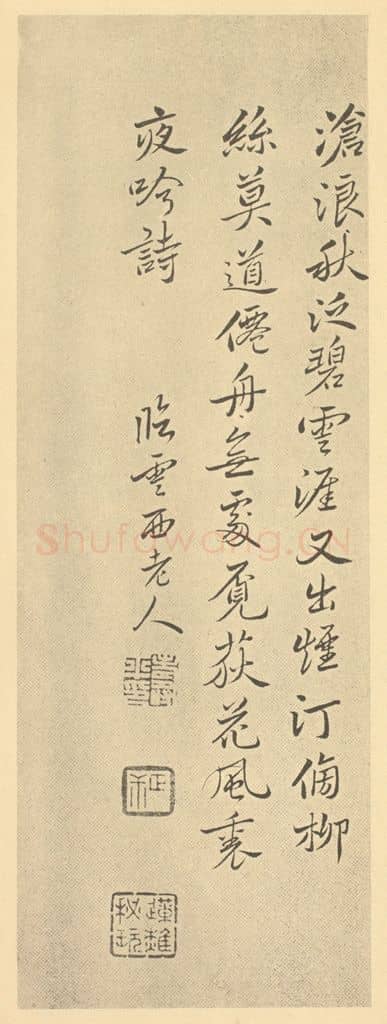 滄浪秋泛碧雲涯又出煙汀傍柳
絲莫道僊舟無處覓荻花風裏
夜吟詩
臨雲西老人
Shufawang.CN